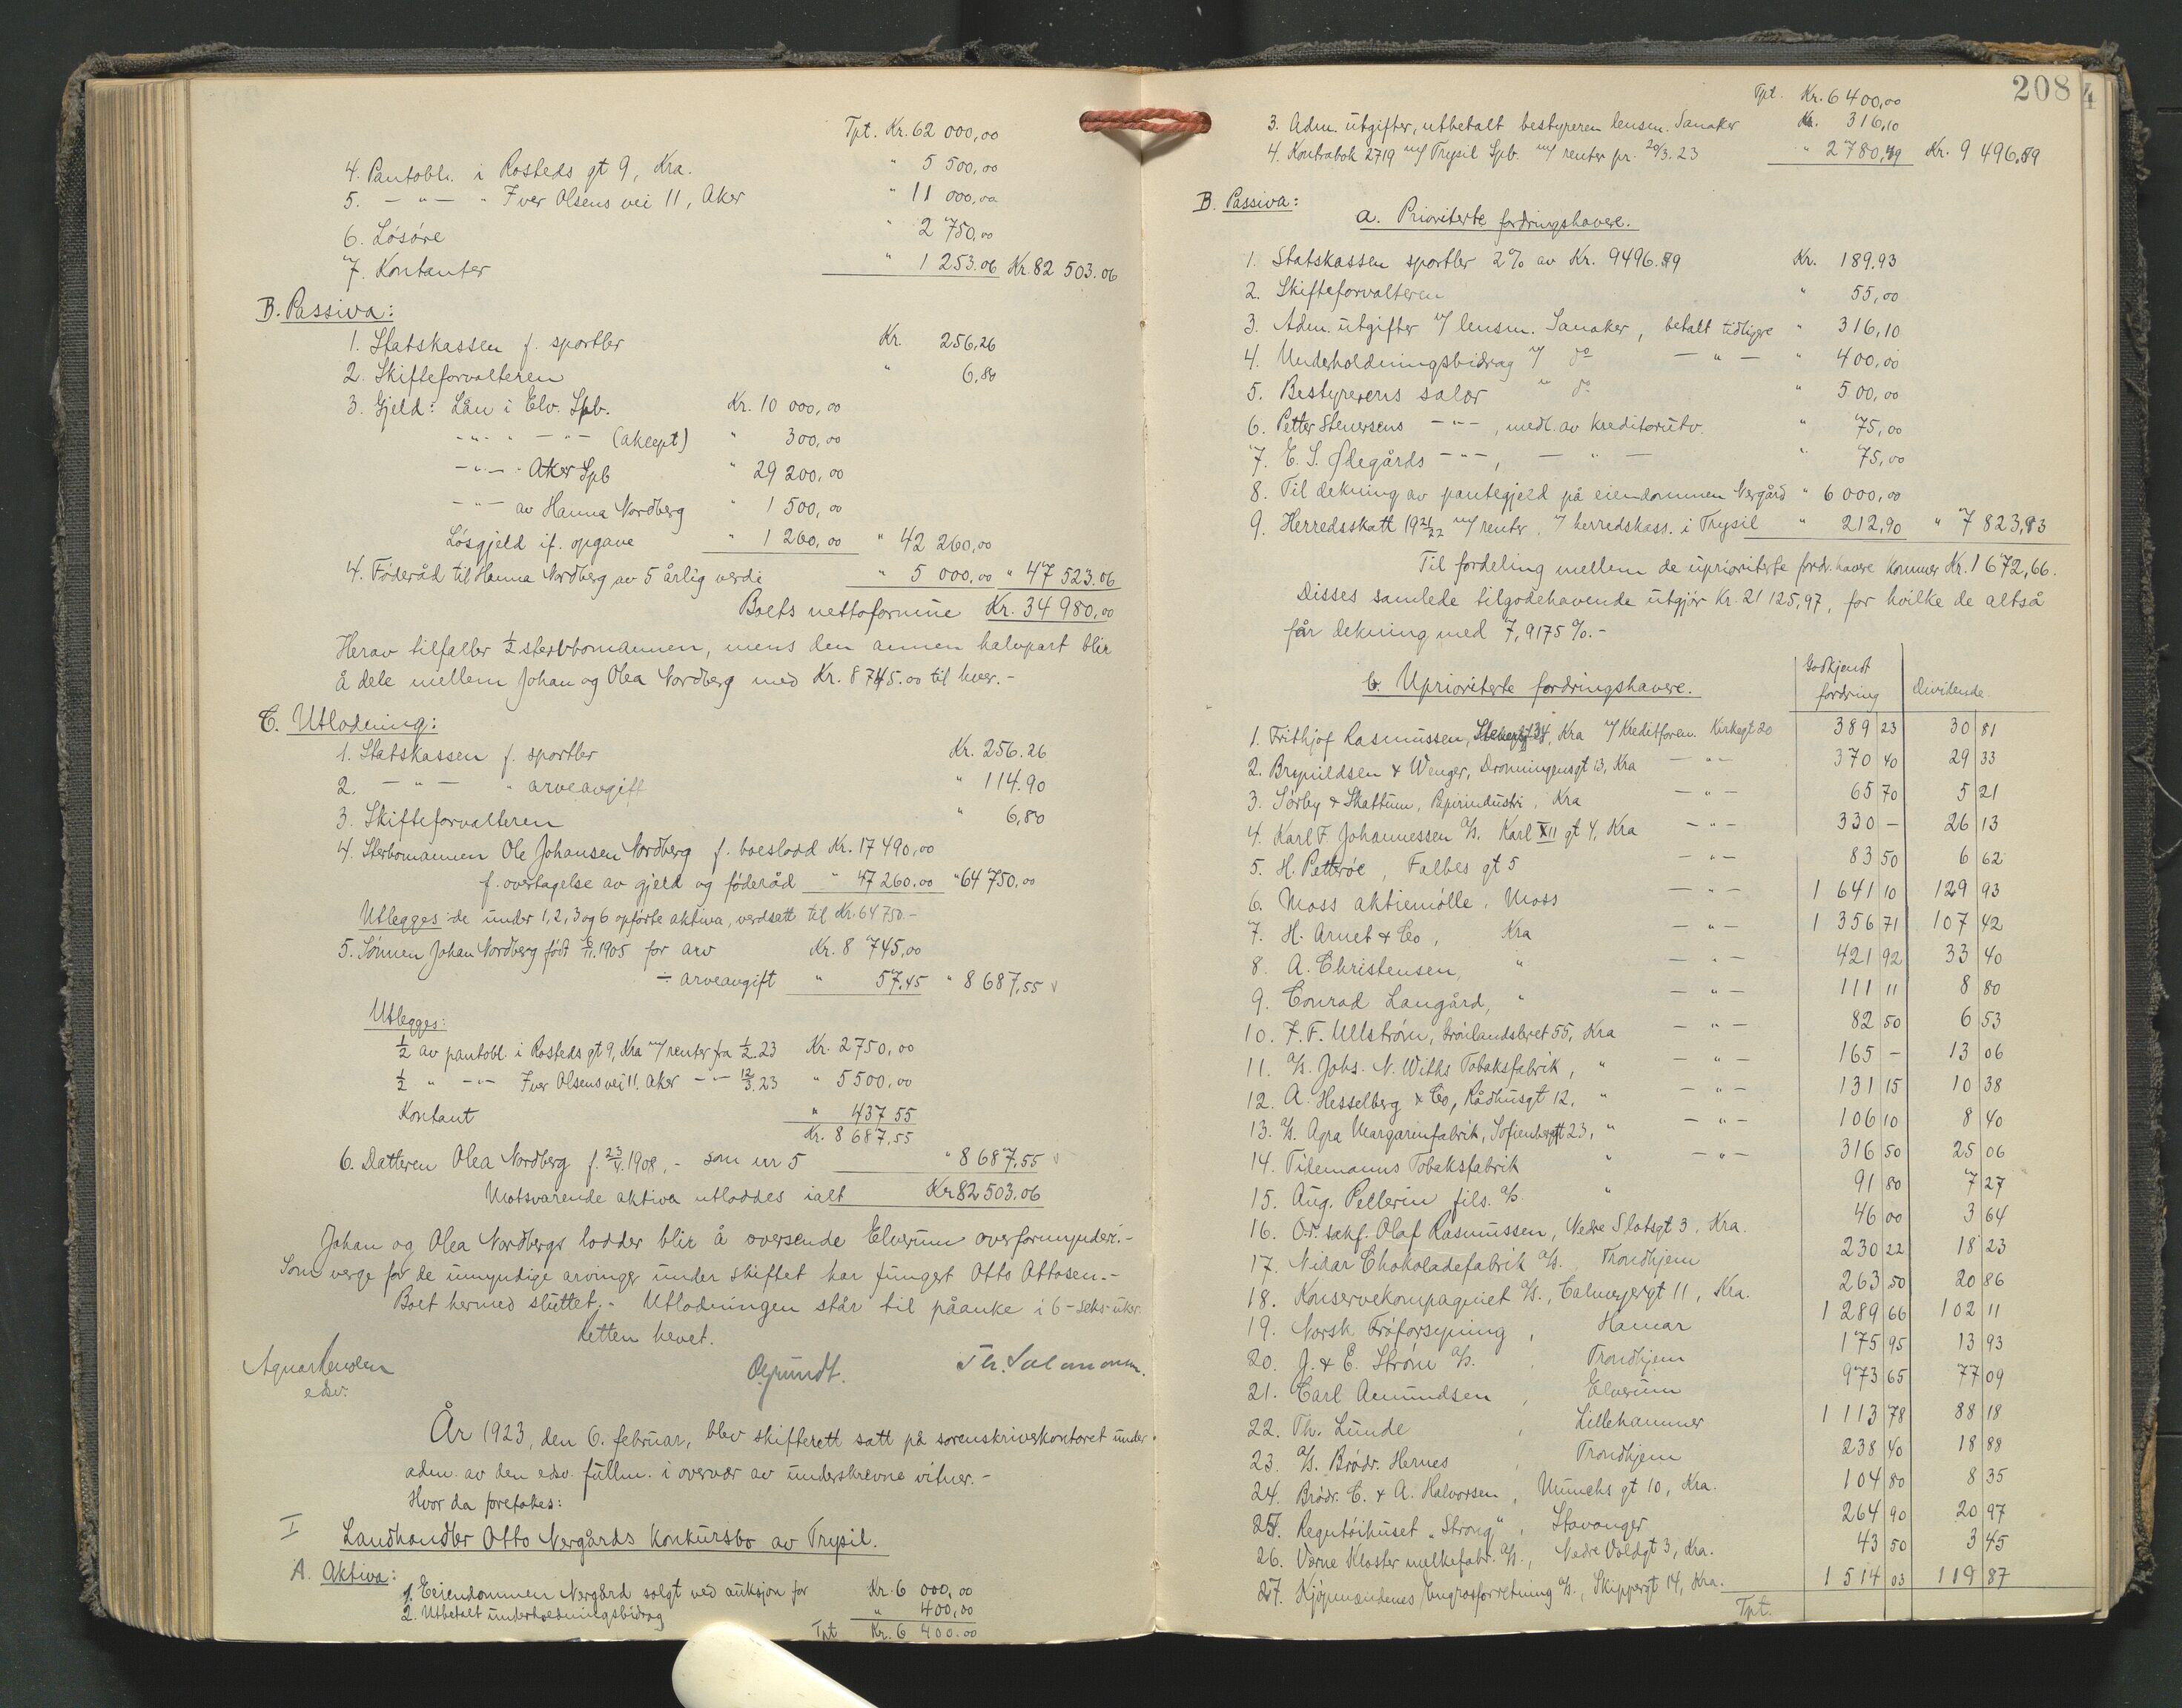 Tpt. Kr. 62 000,00
4. Pantobl. i Rosteds gt 9, Kra. " 5 500,00
5. — " — " Iver Olsens vei 11, Aker " 11 000,00
6. Løsøre " 2 750,00
7. Kontanter " 1 253.06 Kr. 82 503.06
B. Passiva:
1. Statskassen f. sportler Kr. 256,26
2. Skifteforvalteren " 6,80
3. Gjeld: Lån i Elv. Spb. Kr. 10 000,00
- " - " — " — (aksept) " 300,00
- " - " Aker Spb " 29 200,00
- " - av Hanna Nordberg " 1 500,00
Løsgjeld if. opgave " 1 260,00 " 42 260,00
4. Føderåd til Hanna Nordberg av 5 årlig verdi " 5 000,00 " 47 523.06
Boets nettoformue Kr. 34 980,00
Herav tilfaller ½ sterbomannen, mens den annen halvpart blir
å dele mellem Johan og Olea Nordberg med Kr. 8 745.00 til hver.-
C. Utlodning:
1. Statskassen f. sportler Kr. 256.26
2. — " — " arveavgift " 114.90
3. Skifteforvalteren " 6,80
4. Sterbomannen Ole Johansen Nordberg f. boeslodd Kr. 17 490,00
f. overtagelse av gjeld og føderåd " 47 260.00 " 64 750,00
Utlegges: de under 1, 2, 3 og 6 opførte aktiva, verdsatt til Kr. 64 750.-
5. Sønnen Johan Nordberg født 1905 for arv Kr. 8 745,00
÷ arveavgift " 57,45 " 8 687,55
Utlegges:
½ av pantobl. i Rosteds gt 9, Kra m/ renter fra ½.23 Kr. 2750,00
½ " - " - Iver Olsens vei 11. Aker - " - 12/3.23 " 5 500,00
Kontant " 437 55
Kr. 8 687,55
6. Datteren Olea Nordberg f. 23/4.1908,- som nr 5 " 8 687,55
Motsvarende aktiva utloddes ialt Kr 82 503.06
Johan og Olea Nordbergs lodder blir å oversende Elverum overformynderi.-
Som verge for de umyndige arvinger under skiftet har fungert Otto Ottosen.-
Boet hermed sluttet.- Utlodningen står til påanke i 6 - seks uker.
Retten hevet.
edsv. O. Grundt. Th. Salomonsen.
År 1923, den 6. februar, blev skifterett satt på sorenskriverkontoret under
adm. av den edsv. fullm. i overvær av underskrevne vitner.-
Hvor da foretokes:
I Landhandler Otto Nergårds Konkursbo av Trysil.
A. Aktiva:
1. Eiendommen Nergård solgt ved auksjon for Kr. 6 000,00
2. Utbetalt underholdningsbidrag " 400,00
Tpt Kr. 6 400.00
208
4
Tpt. Kr. 6 400,00
3. Adm. utgifter, utbetalt bestyreren lensm. Sanaker Kr. 316,10
4. Kontrabok 2719 m/ Trysil Spb. m/ renter pr. 20/3.23 " 2 780,79 Kr. 9 496,89
B. Passiva:
a. Prioriterte fordringshavere.
1. Statskassen sportler 2% av Kr. 9496.89 Kr. 189.93
2. Skifteforvalteren " 55,00
3. Adm. utgifter v/ lensm. Sanaker, betalt tidligere " 316,10
4. Underholdningsbidrag v/ do — " — " 400,00
5. Bestyrerens salær " do " 500,00
6. Petter Stenersens - " - , medl. av kreditorutv. " 75,00
7. E. S. Ødegårds - " - , — " — " 75,00
8. Til dekning av pantegjeld på eiendommen Nergård " 6 000,00
9. Herredsskatt 1921/22 m/ renter, v/ herredskass. i Trysil " 212,90 " 7 823,93
Til fordeling mellem de uprioriterte fordr.havere kommer Kr. 1 672,66.
Disses samlede tilgodehavende utgjør Kr. 21 125,97, for hvilke de altså
får dekning med 7,9175 %.-
b. Uprioriterte fordringshavere. Godkjendt fordring Dividende
1. Frithjof Rasmussen, Kra v/ Kreditforen. Kirkegt 20 389 23 30 81
2. Brynildsen & Wenger, Dronningensgt 13, Kra — " — 370 40 29 33
3. Sørby & Skattum, Papirindustri, Kra — " — 65 70 5 21
4. Karl F. Johannessen A/S. Karl XII gt 4, Kra — " — 330 — 26 13
5. H. Petterøe, Falbes gt 5 — " — 83 50 6 62
6. Moss aktiemølle, Moss — " — 1 641 10 129 93
7. H. Arnet & Co, Kra — " — 1 356 71 107 42
8. A. Christensen, " — " — 421 92 33 40
9. Conrad Langård, " — " — 111 11 8 80
10. F. F. Ullstrøm, Grønlandsleret 55, Kra — " — 82 50 6 53
11. A/S. Johs. N. Withs Tobaksfabrik, " — " — 165 — 13 06
12. A. Hesselberg & Co, Rådhusgt 12, " — " — 131 15 10 38
13. A/S. Agra Margarinfabrik, Sofienberggt 23, " — " — 106 10 8 40
14. Tidemanns Tobaksfabrik " — " — 316 50 25 06
15. Aug. Pellerin fils. A/S. " 91 80 7 27
16. O.r. sakf. Olaf Rasmussen, Nedre Slotsgt 3, Kra. 46 00 3 64
17. Nidar Chokoladefabrik A/S. Trondhjem 230 22 18 23
18. Konservekompagniet A/S., Calmeyergt 11, Kra. 263 50 20 86
19. Norsk Frøforsyning, Hamar 1 289 66 102 11
20. J. & E. Strøm A/S. , Trondhjem 175 95 13 93
21. Carl Amundsen , Elverum 973 65 77 09
22. Th. Lunde , Lillehammer 1 113 78 88 18
23. A/S. Brødr. Hernes , Trondhjem 238 40 18 88
24. Brødr. E. & A. Halvorsen, Munchs gt 10, Kra. 104 80 8 35
25. Regntøihuset "Strong", Stavanger 264 90 20 97
26. Værne Kloster melkefabr. A/S., Nedre Voldgt 3, Kra. 43 50 3 45
27. Kjøpmændenes Engrosforretning A/S., Skippergt 14, Kra. 1 514 03 119 87
Tpt.